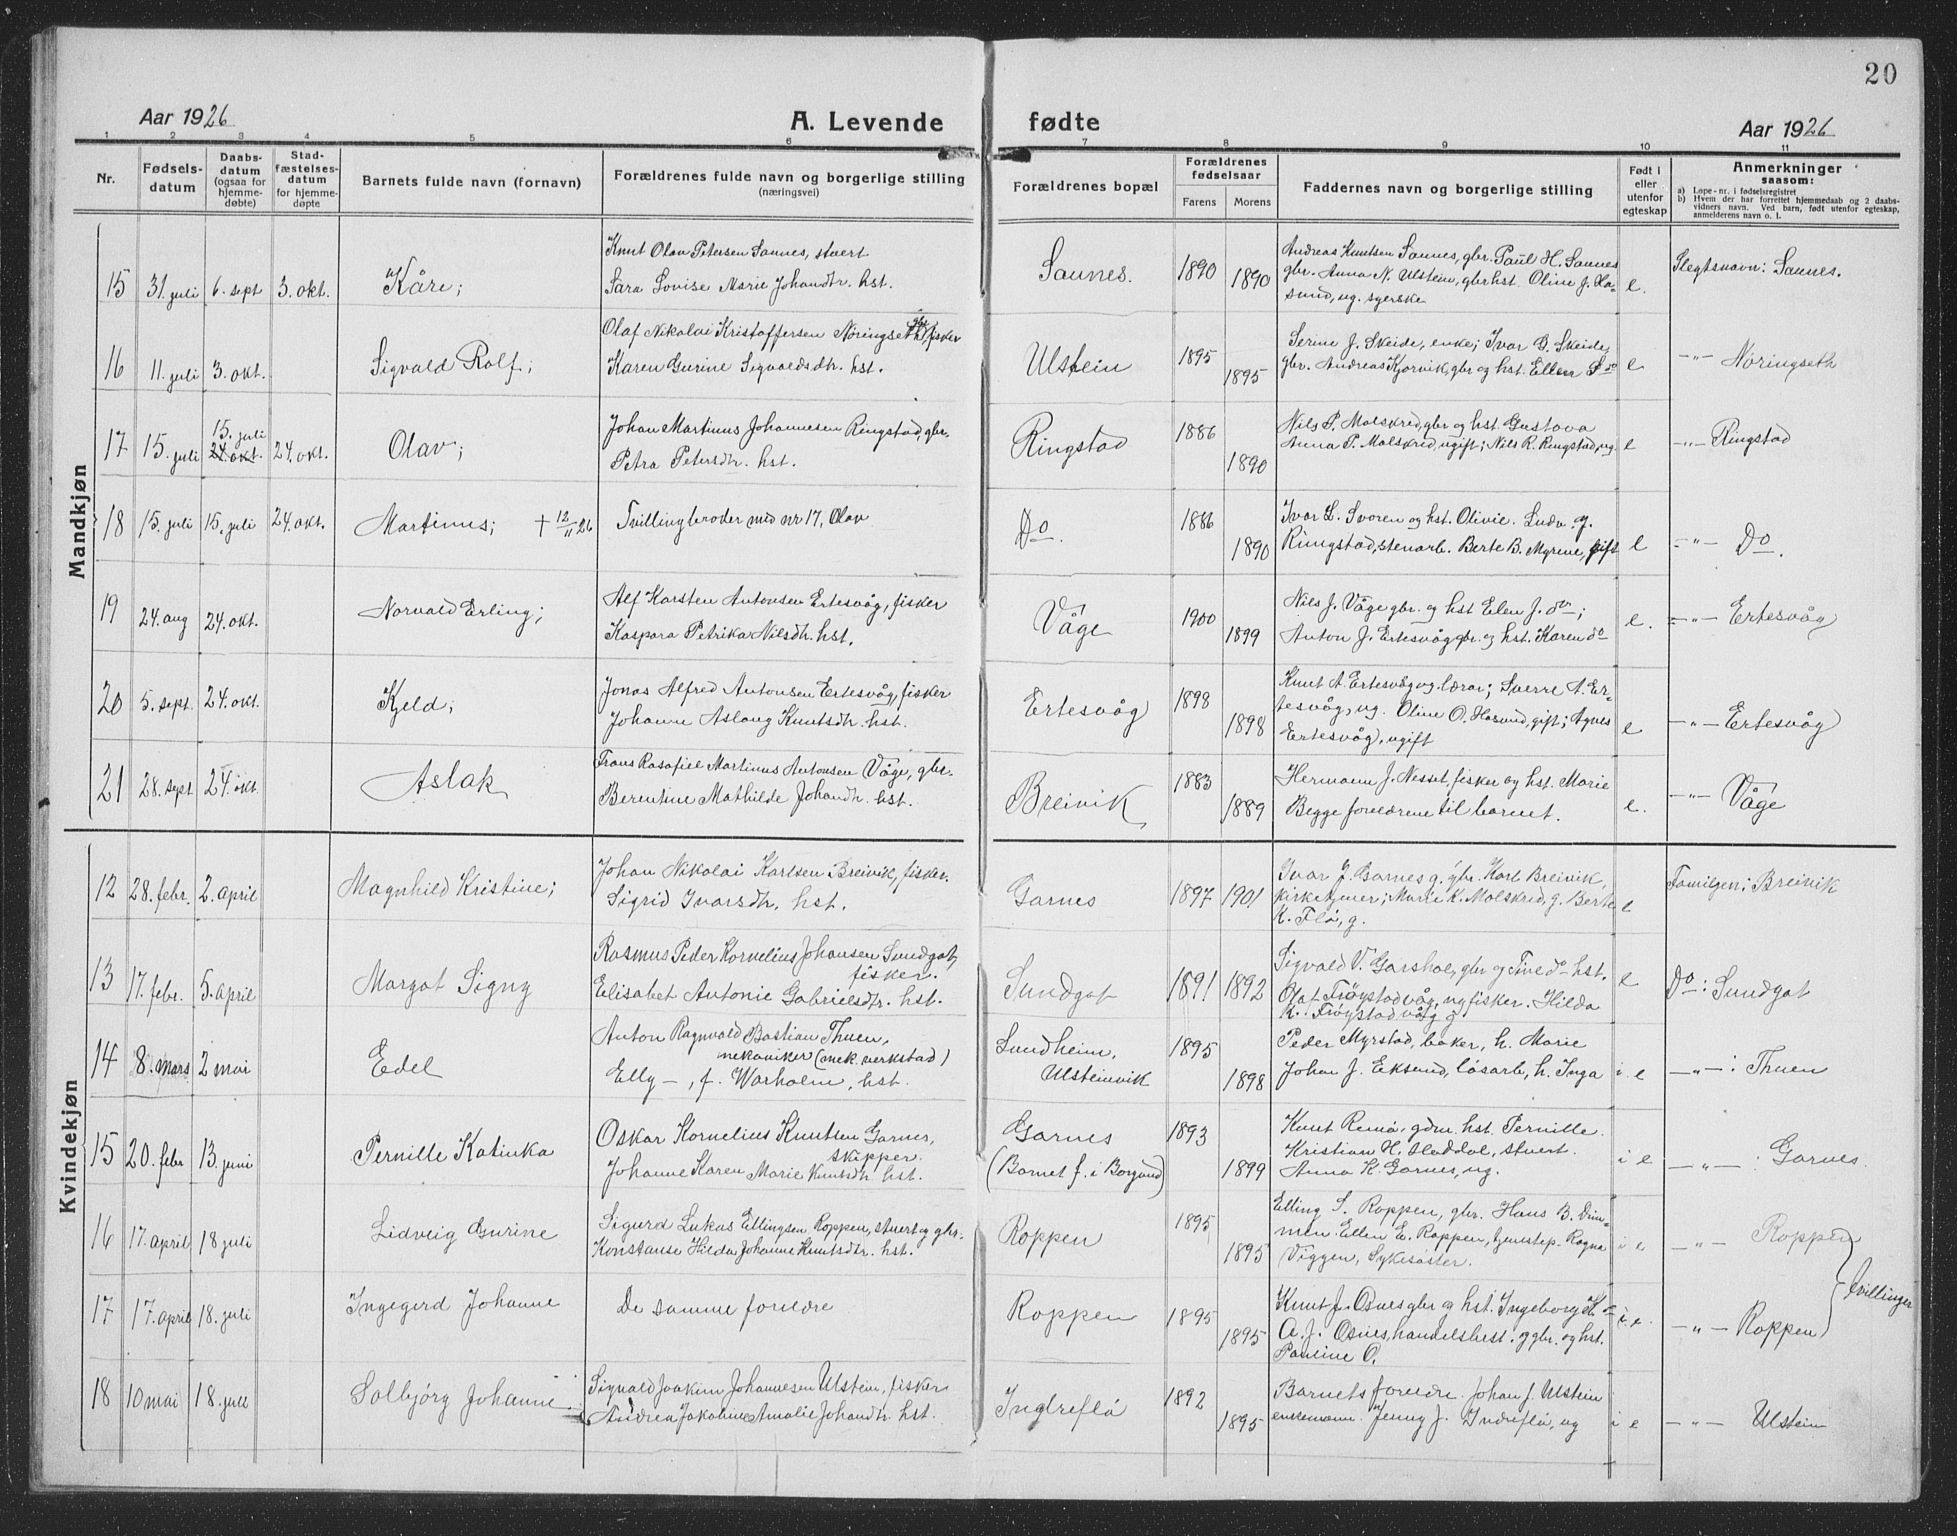 20
Aar 1926
A. Levende fødte
Aar 1926
1 2 3 4 5 6 7 8 9 10 11
Nr.
Fødsels-
datum
Daabs-
datum
(ogsaa for
hjemme-
døbte)
Stad-
fæstelses-
datum
for hjemme-
døpte
Barnets fulde navn (fornavn)
Forældrenes fulde navn og borgerlige stilling
(næringsvei)
Forældrenes bopæl
Forældrenes
fødselsaar
Farens Morens
Faddernes navn og borgerlige stilling
Født i
eller
utenfor
egteskap
Anmerkninger
saasom:
a) Løpe-nr. i fødselsregistret
b) Hvem der har forrettet hjemmedaab og 2 daabs-
vidners navn. Ved barn, født utenfor egteskap,
anmelderens navn o. l.
Mandkjøn
15 31. juli 6. sept 3. okt. Kåre;
Knut Olav Petersen Saunes, stuert
Sara Lovise Marie Johandtr. hst.
Saunes. 1890 1890
Andreas Knutsen Saunes, gbr. Paul H. Saunes
gbr. Anna N. Ulstein, gbr hst. Oline J. Ha-
sund, ug. syerske
e. Slegtsnavn: Saunes.
16 11. juli 3. okt. Sigvald Rolf;
Olaf Nikolai Kristoffersen Nøringseth, fisker
Karen Gurine Sigvaldsdtr. hst.
Ulstein 1895 1895
Serine J. Skeide, enke; Ivar G. Skeide,
gbr. Andreas Kjørvik, gbr og hst. Ellen S do
e -"- Nøringseth
17 15. juli 15. juli 24. okt. 24. okt. Olav;
Johan Martinus Johannesen Ringstad, gbr.
Petra Petersdtr. hst.
Ringstad 1886 1890
Nils P. Molskred, gbr og hst. Gustava
Anna P. Molskred, ugift; Nils R. Ringstad, ug.
e -"- Ringstad
18 15. juli 15. juli 24. okt. Martinus; + 12/11 26
Tvillingbroder med nr 17, Olav
Do. 1886 1890
Ivar L. Svoren og hst. Olivie. Ludv. J.
Ringstad, stenarb. Berte B. Myrene, gift
e -"- Do.
19 24. aug 24. okt. Norvald Erling;
Alf Karsten Antonsen Ertesvåg, fisker
Kaspara Petrika Nilsdtr. hst.
Våge 1900 1899
Nils J. Våge gbr. og hst Elen J. do;
Anton J. Ertesvåg gbr. og hst. Karen do
e. -"- Ertesvåg
20 5. sept. 24. okt. Kjeld;
Jonas Alfred Antonsen Ertesvåg, fisker
Johanne Aslaug Knutsdtr. hst.
Ertesvåg 1898 1898
Knut A. Ertesvåg ug. lærar; Sverre A. Er-
tesvåg, ug. Oline O. Hasund, gift; Agnes
Ertesvåg, ugift
e -"- Ertesvåg
21 28. sept 24. okt. Aslak
Frans Rasafiel Martinus Antonsen Våge, gbr.
Berentine Mathilde Johandtr. hst.
Breivik 1883 1889
Hermann J. Nesset, fisker og hst. Marie
Begge foreldrene til barnet.
e. -"- Våge
Kvindekjøn
12 28. febr. 2. april Magnhild Kristine;
Johan Nikolai Karlsen Breivik, fisker.
Sigrid Ivarsdtr. hst.
Garnes 1897 1901
Ivar J. Garnes g. gbr. Karl Breivik,
kirketjener; Marie K. Molskred, g. Berte
K. Flø, g.
e Familjen: Breivik
13 17. febr. 5. april Margot Signy
Rasmus Peder Kornelius Johansen Sundgot,
fisker.
Elisabet Antonie Gabrielsdtr. hst.
Sundgot 1891 1892
Sigvald V. Garshol, gbr og Tine do hst.
Olaf Frøystadvåg, ug fisker. Hilda
K. Frøystadvåg g
e Do: Sundgot
14 8. mars 2 mai Edel
Anton Ragnvald Bastian Thuen,
mekaniker (mek. verkstad)
Elly —, f. Warholm, hst.
Sundheim,
Ulsteinvik
1895 1898
Peder Myrstad, baker, h. Marie
Johan J. Eksund, løsarb, h. Inga
i e -"- : Thuen
15 20. febr 13. juni Pernille Katinka
Oskar Kornelius Knutsen Garnes,
skipper.
Johanne Karen Marie Knutsdtr hst.
Garnes
(Barnet f. i Borgund)
1893 1899
Knut Remø, gdm. hst. Pernille.
Kristian H. Haddal, stuert.
Anna K. Garnes, ug.
i e -"- : Garnes.
16 17. april 18 juli Lidveig Gurine
Sigurd Lukas Ellingsen Roppen, stuert og gbr.
Konstanse Hilda Johanne Knutsdtr. hst.
Roppen 1895 1895
Elling S. Roppen, gbr. Hans B. Dim-
men Ellen E. Roppen, tjenstep. Ragna
Viggen, Sykesøster.
i e -"- Roppen
17 17. april 18. juli Ingegerd Johanne
De samme foreldre
Roppen 1895 1895
Knut J. Osnes gbr og hst. Ingeborg K. do
A. J. Osnes, handelsbest. og gbr. og hst.
Pauline O.
i e. -"- Roppen
tvillinger
18 10 mai 18. juli Solbjørg Johanne
Sigvald Joakim Johannesen Ulstein, fisker
Andrea Jakobine Amalie Johandtr. hst.
Indreflø 1892 1895
Barnets foreldre. Johan J. Ulstein
enkemann. Jenny J. Indreflø, ug
i e -"- Ulstein